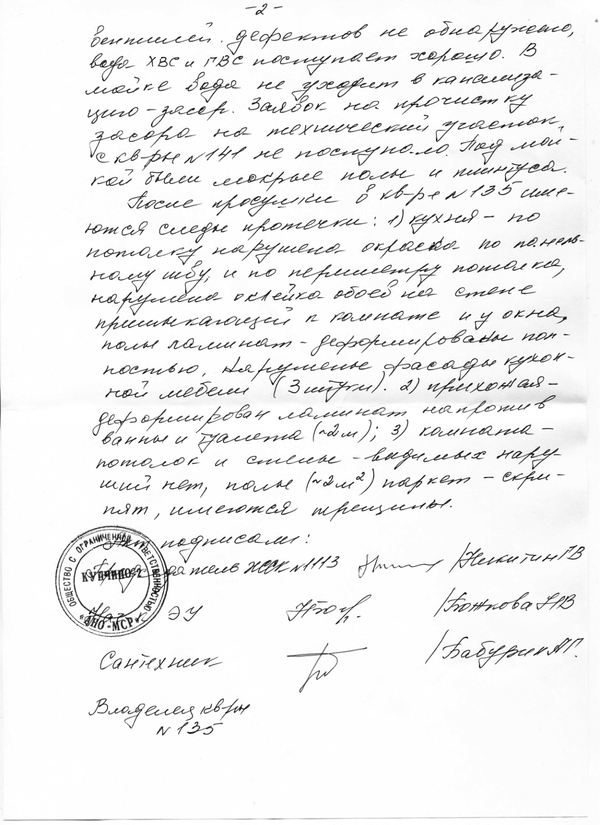 -2-
вентилей. дефектов не обнаружено,
вода ХВС и ГВС поступает хорошо. В
мойке вода не уходит в канализа-
цию - засор. Заявок на прочистку
засора на технический участок
с кв-ры №141 не поступало. Под мой-
кой были мокрые полы и плинтуса.
После просушки в кв-ре №135 име-
ются следы протечки: 1) кухня - по
потолку нарушена окраска по панель-
ному шву, и по периметру потолка,
нарушена оклейка обоев на стене
примыкающей к комнате и у окна,
полы ламинат - деформированы пол-
ностью, нарушены фасады кухон-
ной мебели (3 штуки). 2) прихожая -
деформирован ламинат напротив
ванны и туалета (~2м); 3) комната -
потолок и стены - видимых нару-
ший нет, полы (~2м²) паркет - скри-
пят, имеются трещины.
подписали:
ЖСК №1113 /Никитин ГВ
ОБЩЕСТВО С ОГРАНИЧЕННОЙ ОТВЕТСТВЕННОСТЬЮ
КУПЧИНО-2
ЭУ /Божкова НВ
Сантехник /Бабурин А.Г.
Владелец кв-ры
№135